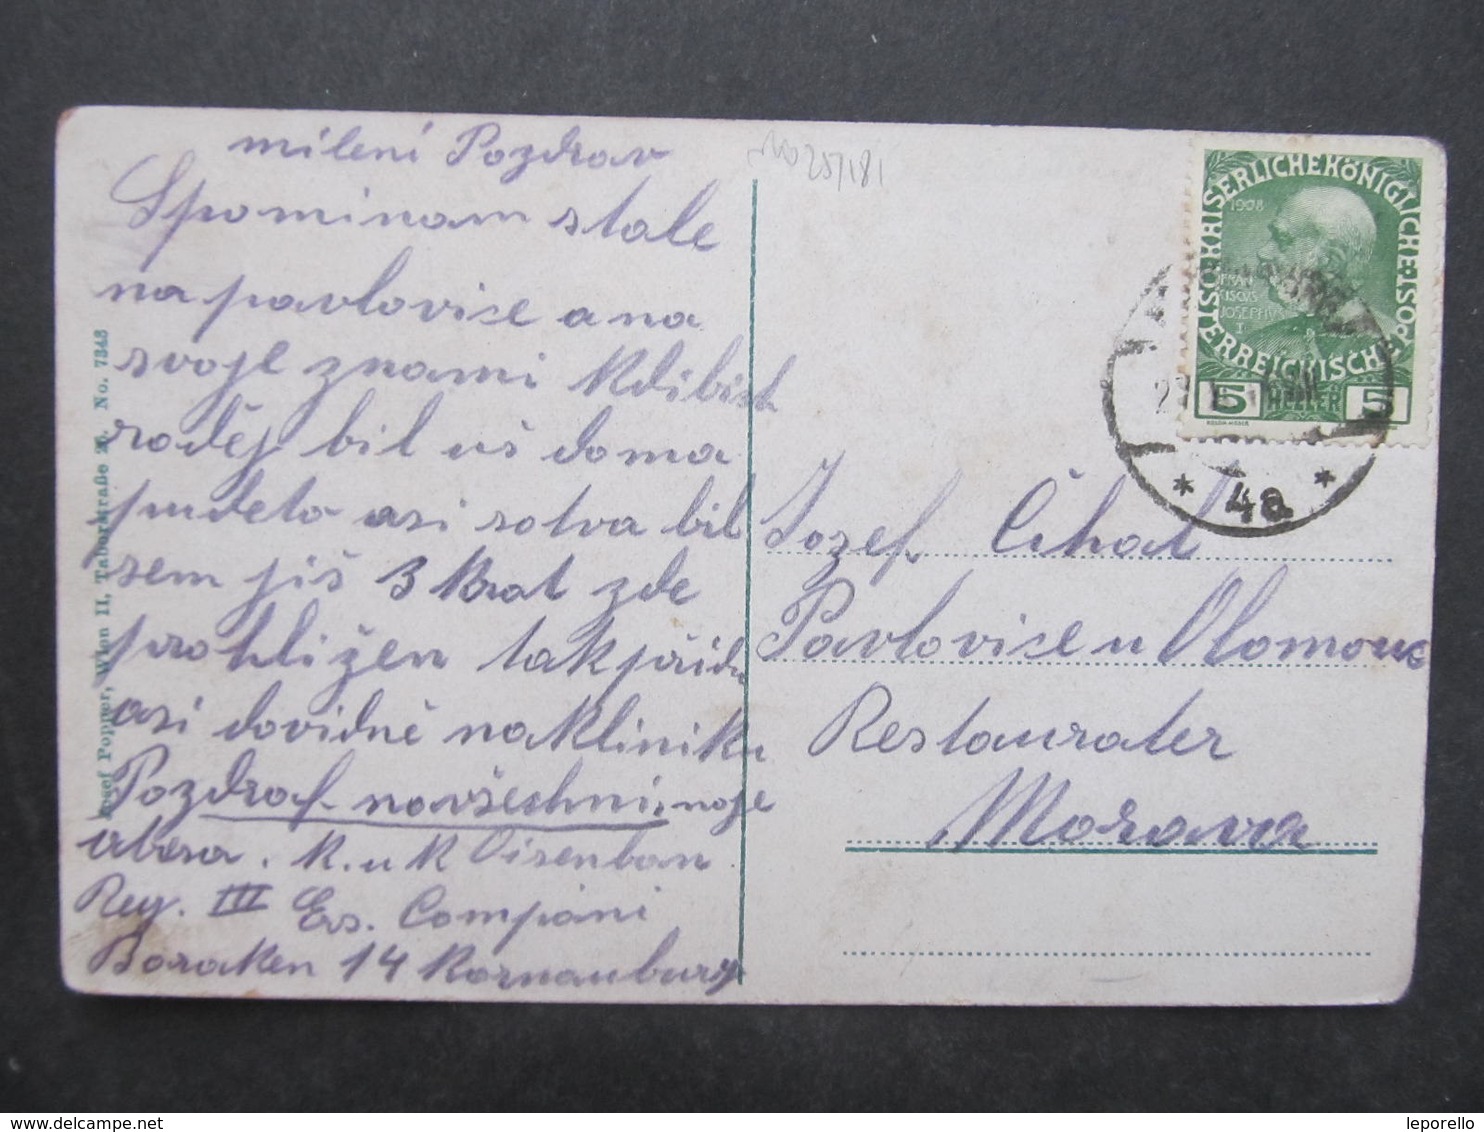 mileni Pozdrav
Spominam stale
na pavlovice a na
svoje znami Kdibich
raděj bil uš doma
pudeto asi sotva bil
sem jiš 3 krat zde
prohližen tak přidu
asi dovidně na kliniku
Pozdraf navšechni, moje
K. u K Eisenban
Reg. III Ers. Compani
Baraken 14 Kornauburg
Josef Popper, Wien II, Taborstraße No. 7343
25/181
KAISERLICHE KÖNIGLICHE ÖSTERREICHISCHE POST
1908
FRAN
CISCUS
JOSEPHUS
I
5 HELLER 5
* 4a *
Jozef Čihal
Pavlovice u Olomouc
Restaurater
Morava
leporello